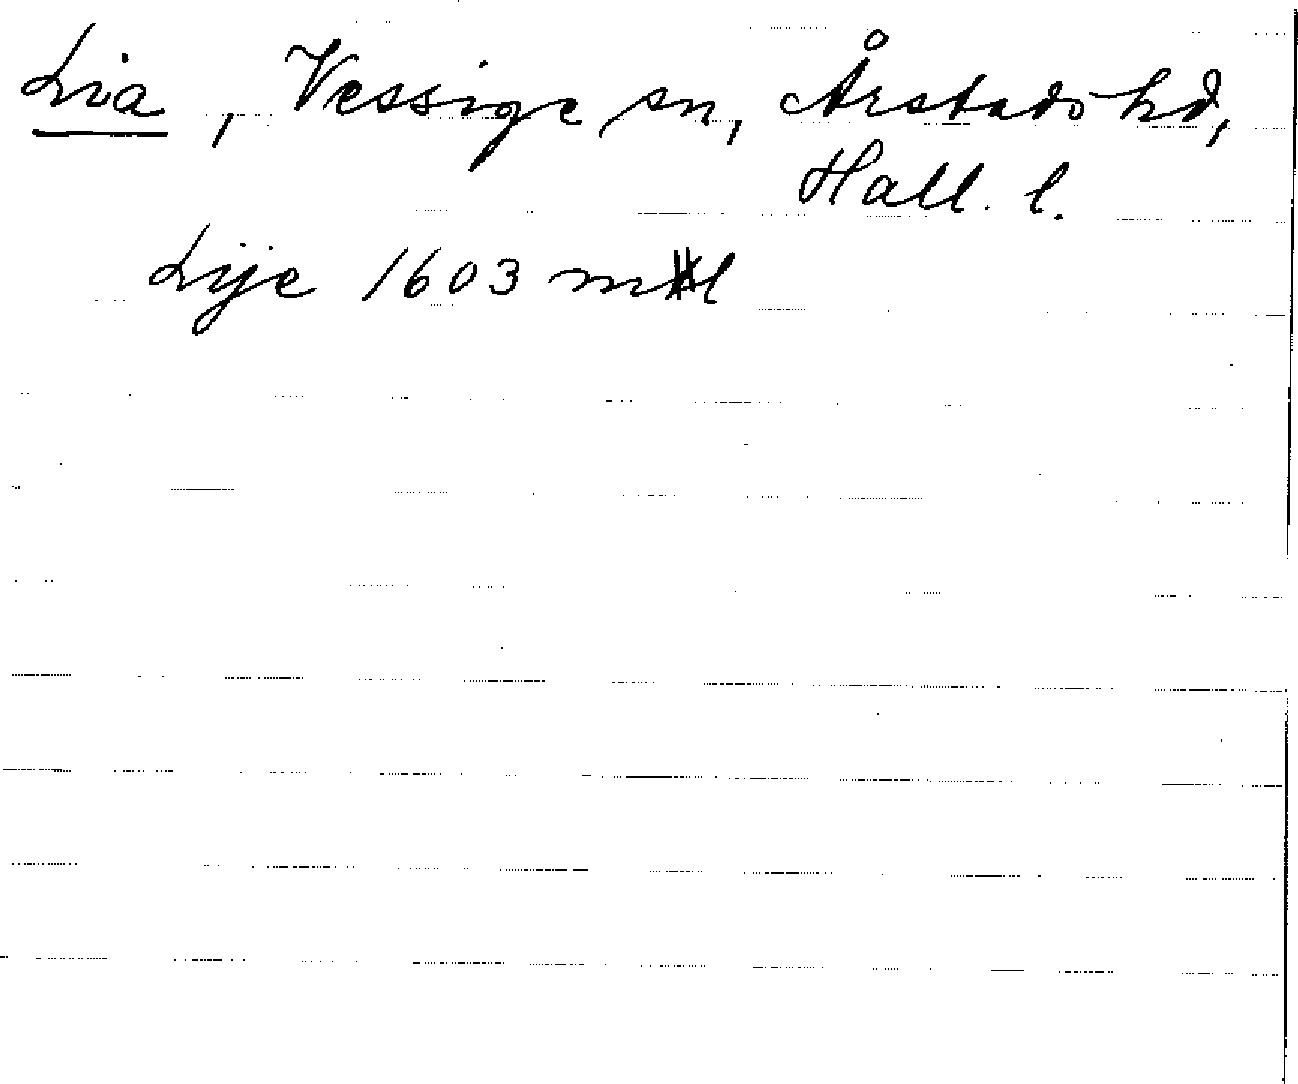 Lia, Vessige sn, Årstads hd,
Hall. l.
Lije 1603 ml